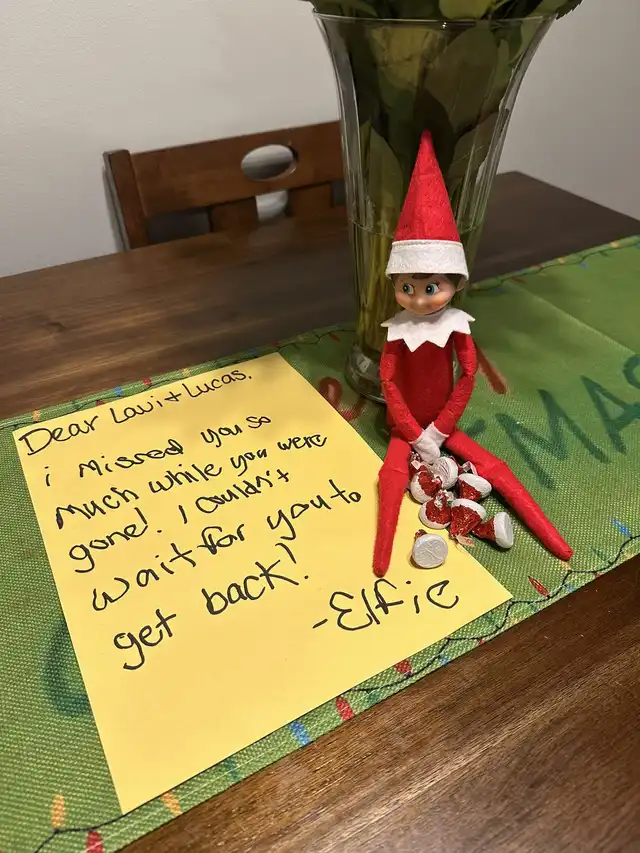 Dear Lavi + Lucas,
i missed you so
much while you were
gone! I couldn't
wait for you to
get back!
-Elfie
MAS